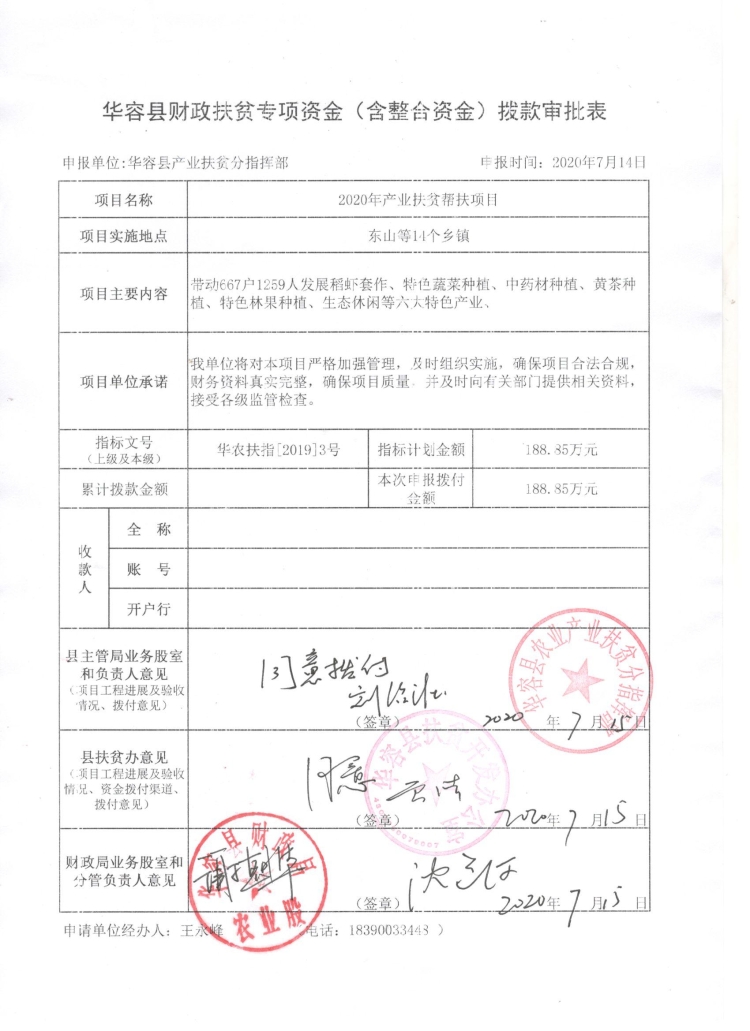 华容县财政扶贫专项资金（含整合资金）拨款审批表
申报单位:华容县产业扶贫分指挥部 申报时间：2020年7月14日
项目名称 2020年产业扶贫帮扶项目
项目实施地点 东山等14个乡镇
项目主要内容
带动667户1259人发展稻虾套作、特色蔬菜种植、中药材种植、黄茶种
植、特色林果种植、生态休闲等六大特色产业、
项目单位承诺
我单位将对本项目严格加强管理，及时组织实施，确保项目合法合规，
财务资料真实完整，确保项目质量，并及时向有关部门提供相关资料，
接受各级监管检查。
指标文号
（上级及本级）
华农扶指[2019]3号 指标计划金额 188.85万元
累计拨款金额
本次申报拨付
金额
188.85万元
收款人
全 称
账 号
开户行
县主管局业务股室
和负责人意见
（项目工程进展及验收
情况、拨付意见）
同意拨付
（签章） 2020 年 7 月 15 日
华容县农业产业扶贫分指挥部
县扶贫办意见
（项目工程进展及验收
情况、资金拨付渠道、
拨付意见）
同意
（签章） 2020年 7 月 15 日
华容县扶贫开发办公室
财政局业务股室和
分管负责人意见
（签章） 2020年 7 月 15 日
华容县财政局
农业股
申请单位经办人：王永峰 电话：18390033448 ）